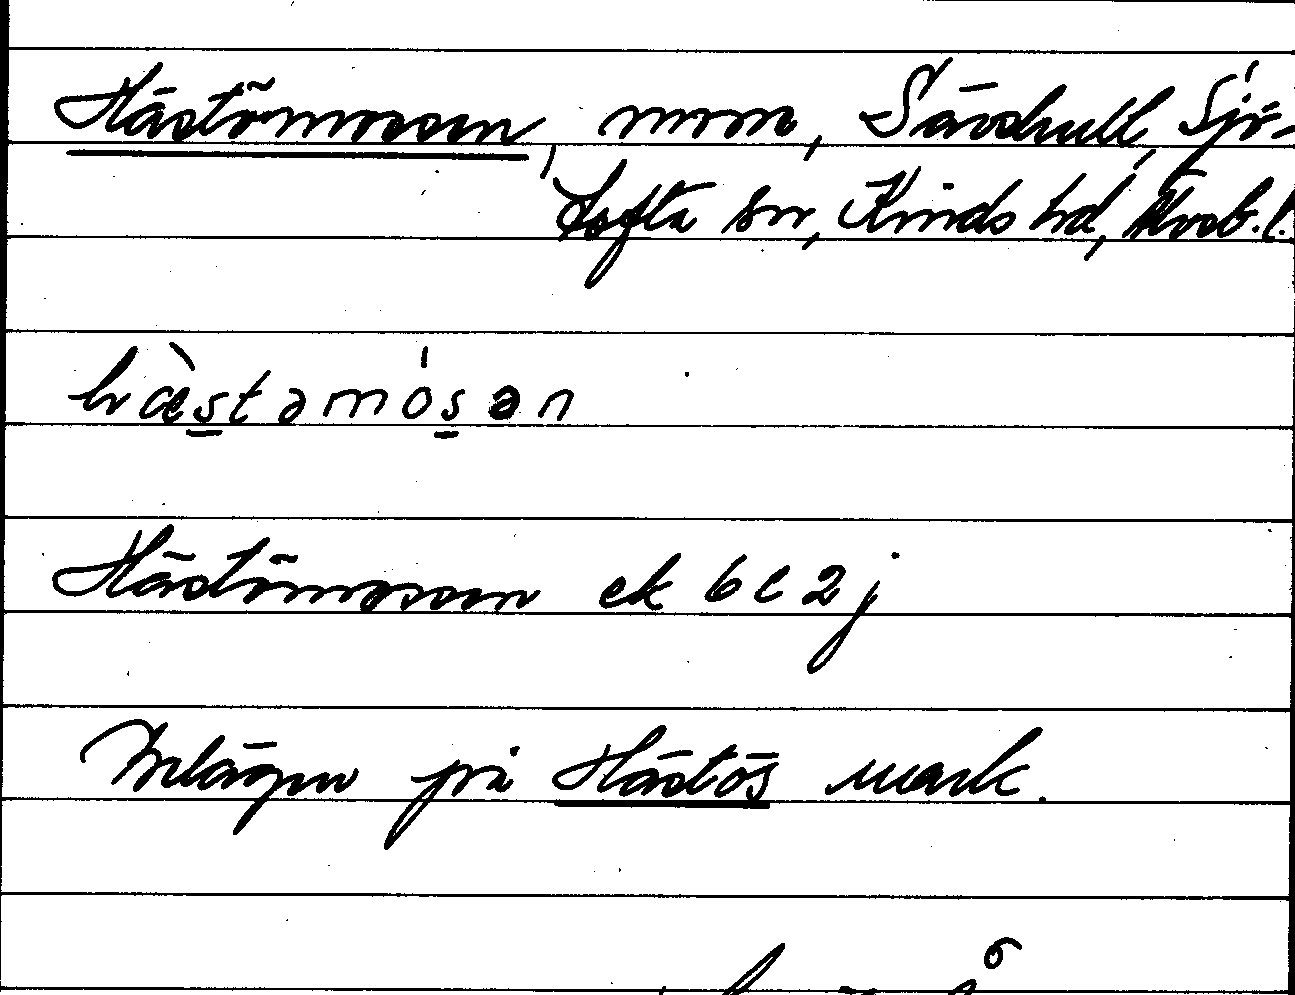 Hästömossen, mosse, Sävshult, Sjö-
tofta sn, Kinds hd, Älvsb. l.
hæ̀stəmósən
Hästömossen ek 6 e 2 j
Belägen på Hästös mark.